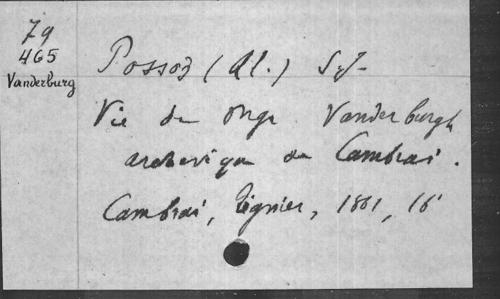 79
465
Vanderburg
Possoz (Al.) S.J.
Vie de Mgr. Vanderburgh
archevêque de Cambrai.
Cambrai, Régnier, 1861, 16°